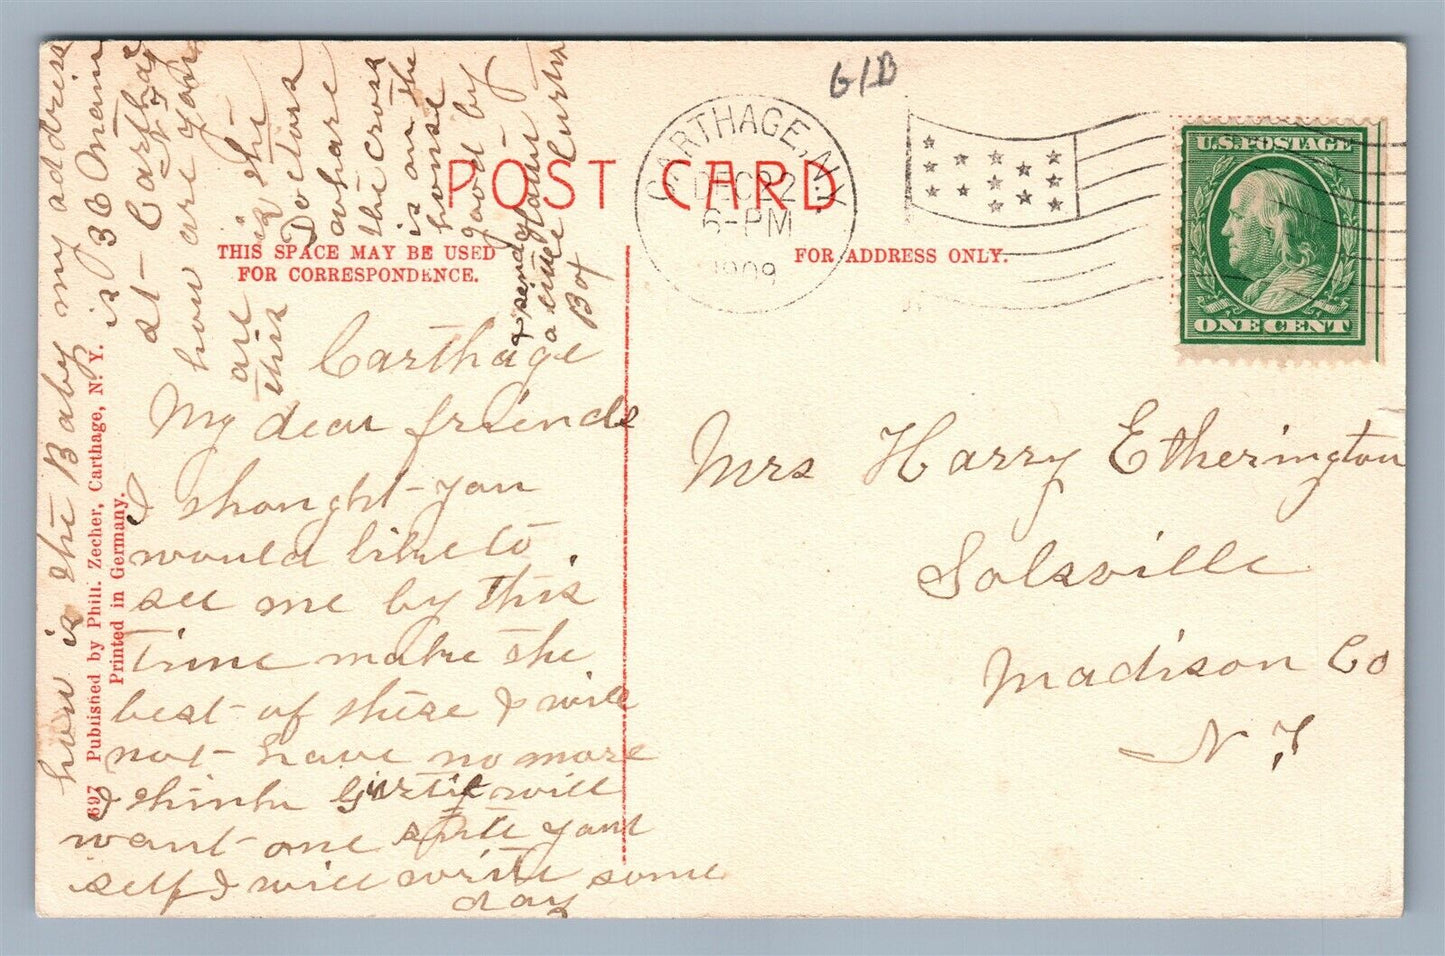 G/B
CARTHAGE, N.Y.
DEC 22
6-PM
1909
U.S. POSTAGE
ONE CENT
POST CARD
THIS SPACE MAY BE USED
FOR CORRESPONDENCE.
FOR ADDRESS ONLY.
Carthage
My dear friends
I thought you
would like to
see me by this
time make the
best of these I will
not have no more
I think Gertie will
want one
self I will write some
day
how is the Baby my address
is 36 main
st - Carthage
N Y
how are you
are is the
this
Doctors
whare
the cross
is on the
house
good by
& send
a
Box
Mrs Harry Etherington
Solsville
Madison Co
N Y
697 Published by Phil. Zecher, Carthage, N. Y.
Printed in Germany.